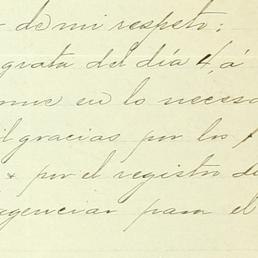 de mi respeto:
grata del día 4, á
en lo necesa
il gracias por los
por el registro de
agenciar para el